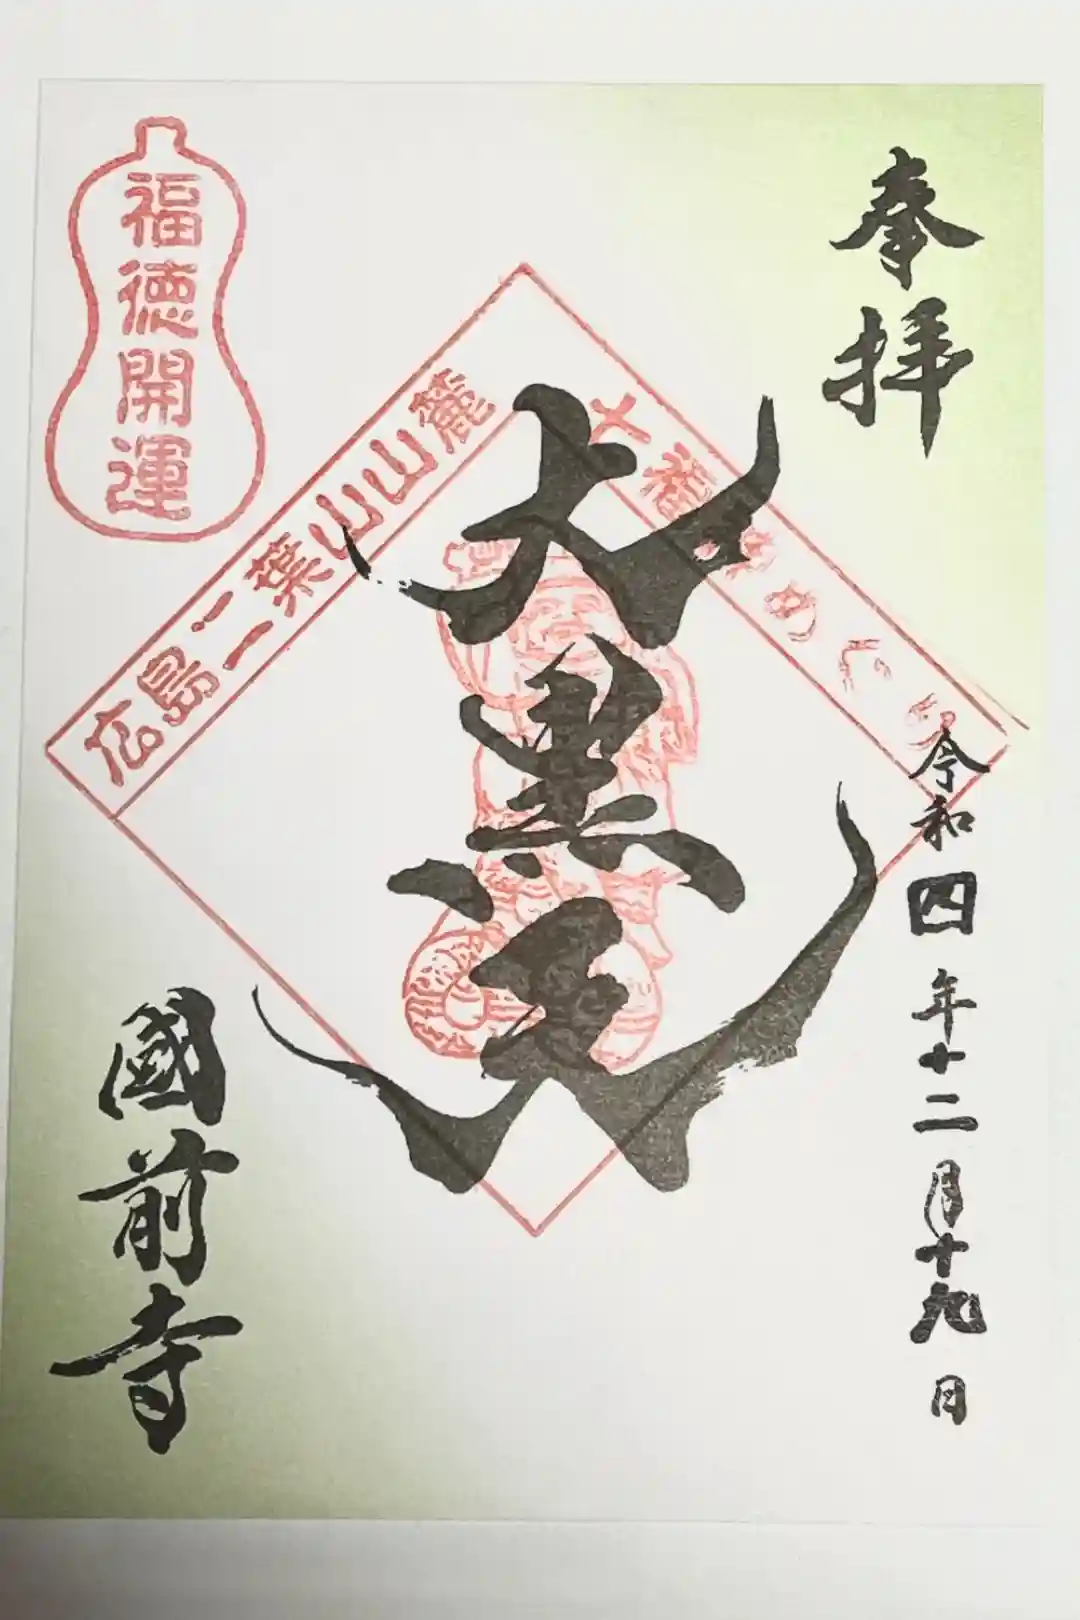 奉拝
令和四年十二月十九日
大黒天
國前寺
福徳開運
広島二葉山山麓
七福神めぐり